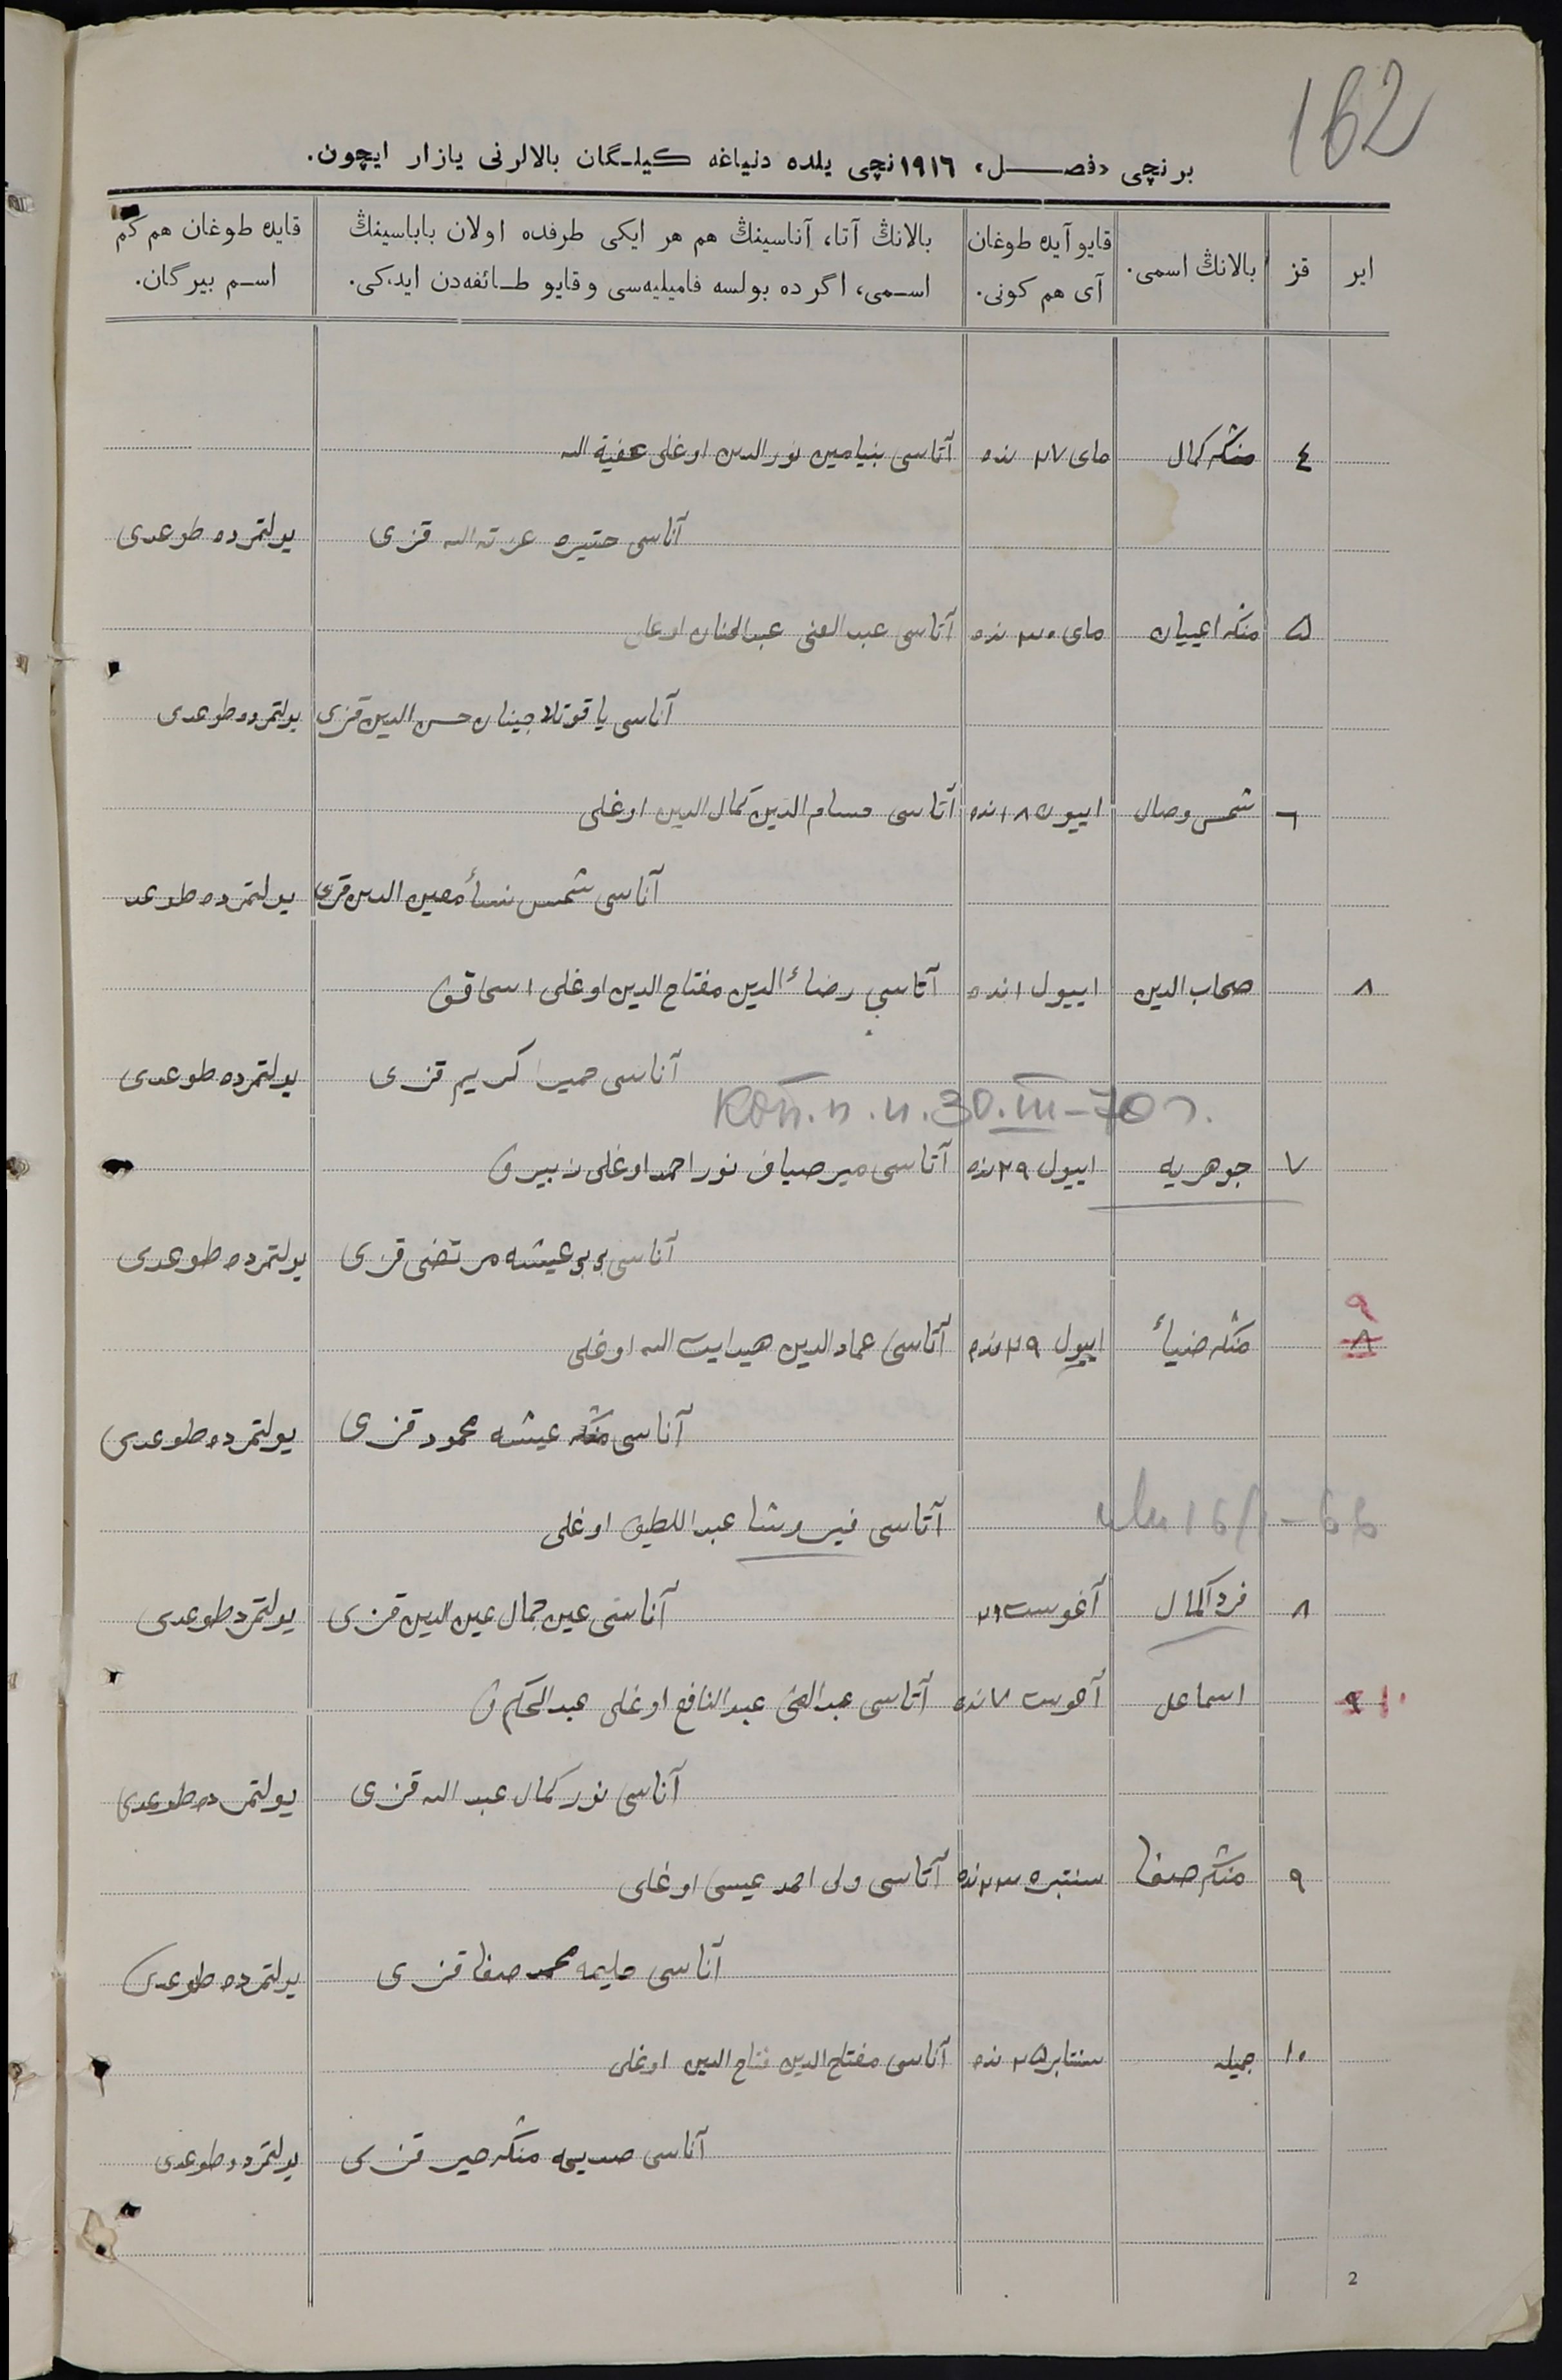 162
برنچی «فصل» ١٩١٦نچی یلده دنیاغه کیلگان بالالرنی یازار ایچون.
ایر
قز
بالانڭ اسمی.
قایو آیده طوغان
آی هم کونی.
بالانڭ آتا، آناسینڭ هم هر ایکی طرفده اولان باباسینڭ
اسمی، اگرده بولسه فامیلیه‌سی و قایو طائفه‌دن ایدکی.
قایده طوغان هم کم
اسم بیرگان.
٤ منکه کمال مای ٢٧ نده آتاسی بنیامین نورالدین اوغلی
آناسی عزة الله قزی یولتمرده طوغدی
٥ منکه مای ٣٠ نده آتاسی عبدالغنی عبدالحنان اوغلی
آناسی حسن الدین قزی یولتمرده طوغدی
٦ شمس وصال اییون ١٨نده آتاسی حسام الدین کمال الدین اوغلی
آناسی شمس نسأ معین الدین قزی یولتمرده طوغدی
٨ صحاب الدین اییول ١نده آتاسی رضاء الدین مفتاح الدین اوغلی اسحاقف
آناسی حمیرا کریم قزی یولتمرده طوغدی
Коп. п. и. 30.III-70 г.
٧ جوهریه اییول ٢٩نده آتاسی میر صیاف نور احمد اوغلی زبیرف
آناسی بوبو عیشه مرتضی قزی یولتمرده طوغدی
٩
٨ منکه ضیاء اییول ٢٩نده آتاسی عمادالدین هیدایت الله اوغلی
آناسی منکه عیشه محمود قزی یولتمرده طوغدی
آتاسی فیروشا عبداللطیف اوغلی
٨ فردالکمال آغوست ٢١ آناسی عین جمال عین الدین قزی یولتمرده طوغدی
١٠ ٩ اسماعل آغوست ٧نده آتاسی عبدالغنی عبدالنافع اوغلی عبدالحکم ف
آناسی نورکمال عبدالله قزی یولتمرده طوغدی
٩ منکه صفا سنتبره ٢٣نده آتاسی ولی احمد عیسی اوغلی
آناسی حلیمه محمد صفا قزی یولتمرده طوغدی
١٠ جمیله سنتابر ٢٥ نده آتاسی مفتاح الدین فتاح الدین اوغلی
آناسی منکه قزی یولتمرده طوغدی
2